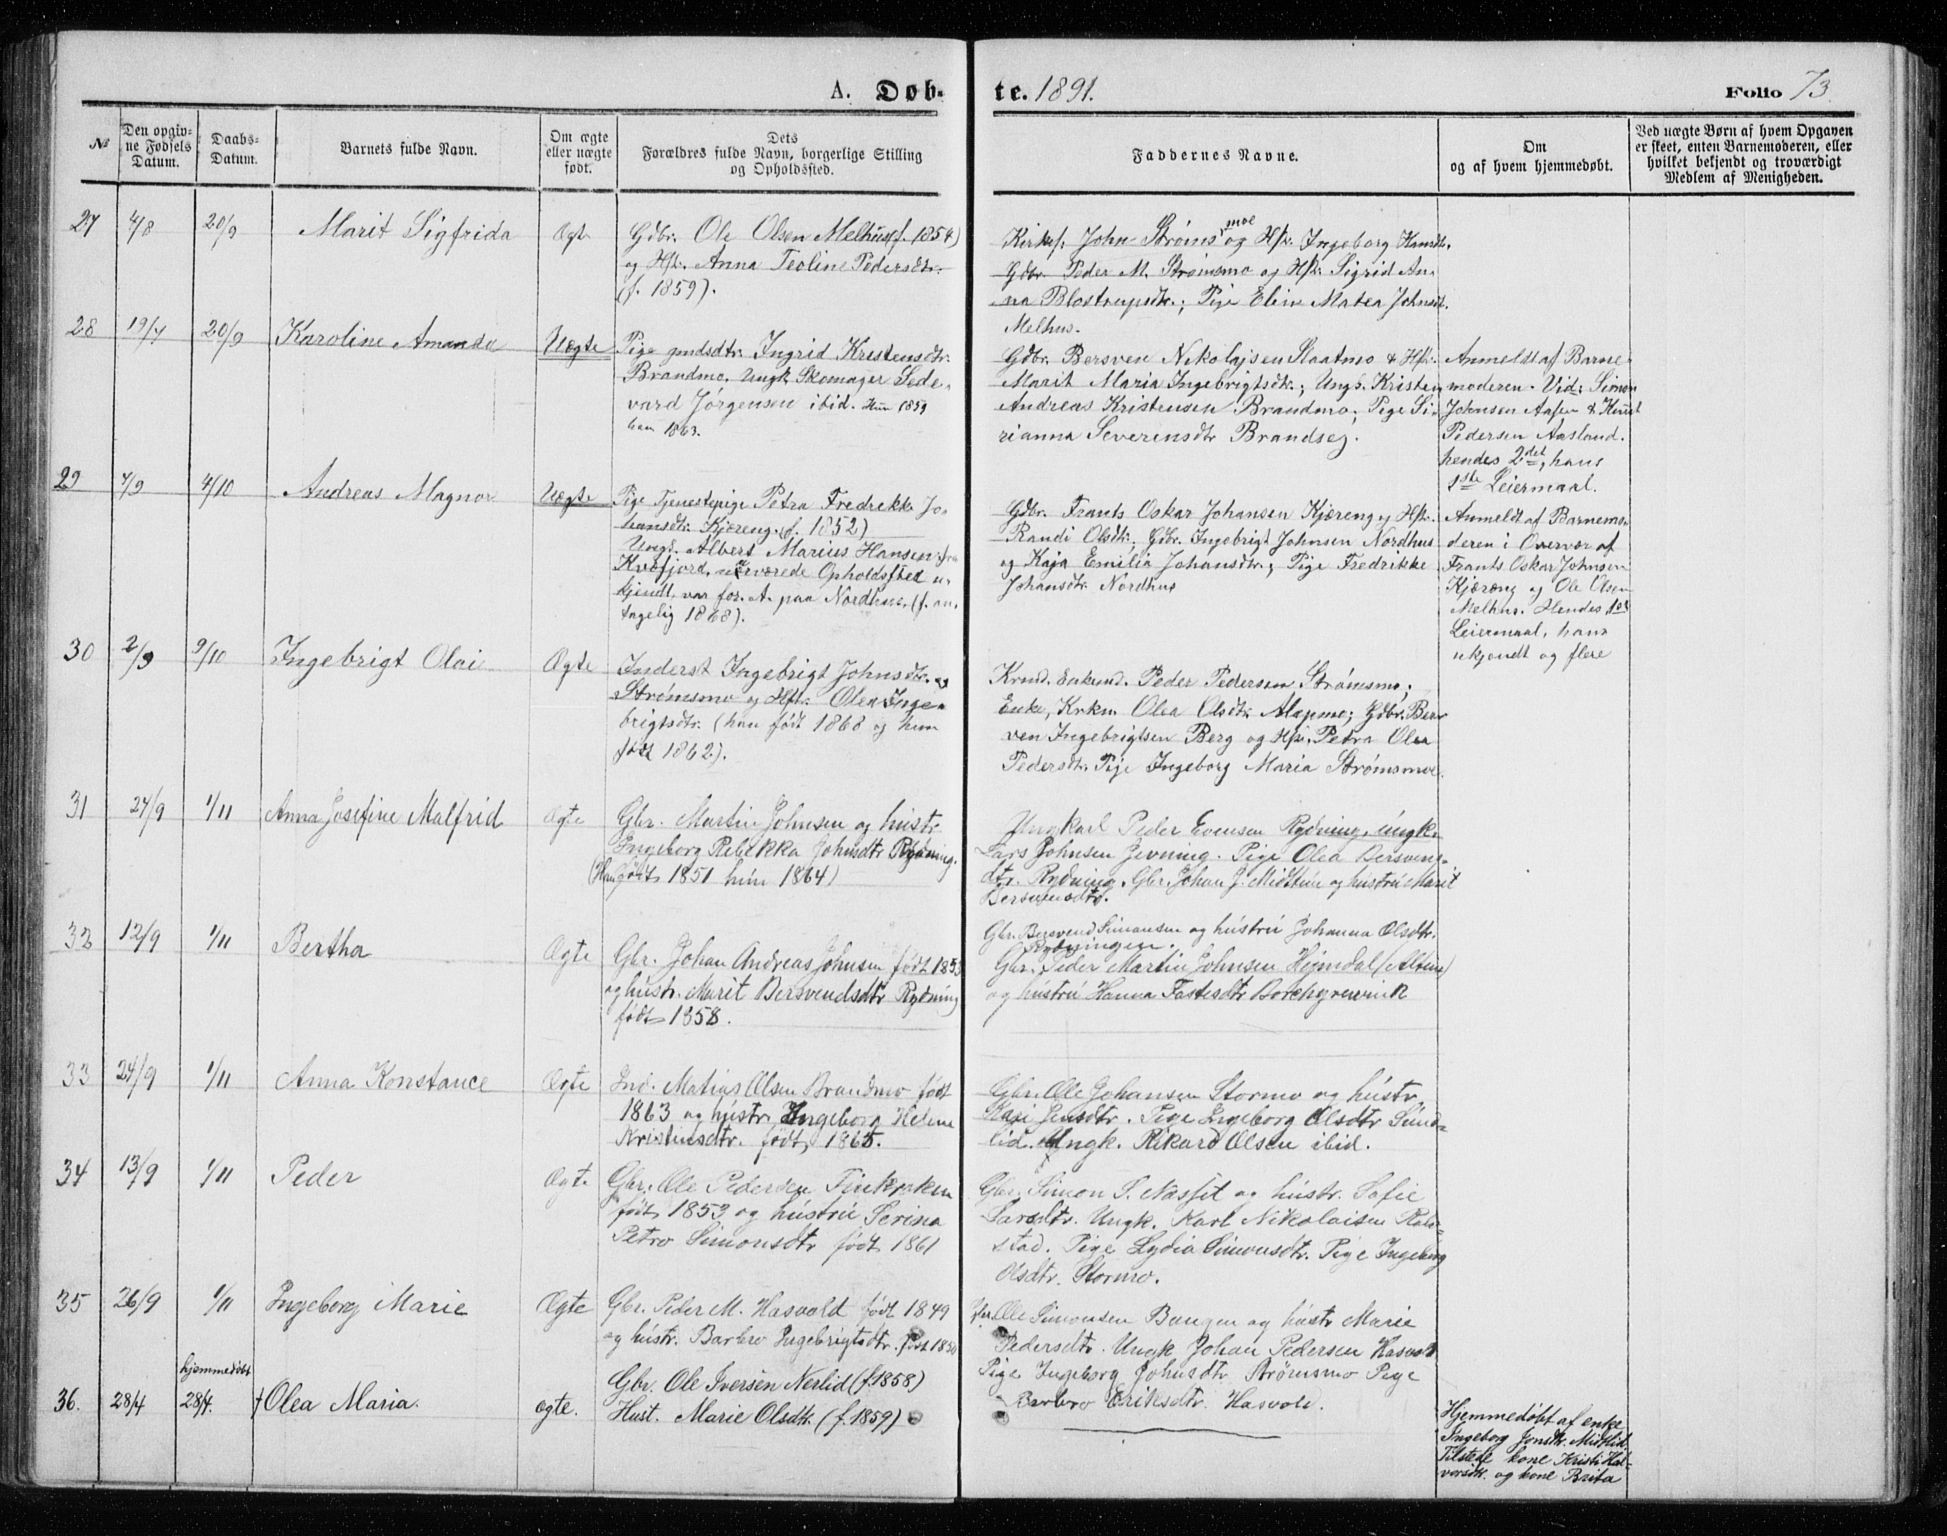 A. Døb-
te. 1891.
Folio 73.
№
Den opgiv-
ne Fødsels
Datum.
Daabs-
Datum.
Barnets fulde Navn.
Om ægte
eller uægte
født.
Dets
Forældres fulde Navn, borgerlige Stilling
og Opholdssted.
Faddernes Navne.
Om
og af hvem hjemmedøbt.
Ved uægte Børn af hvem Opgaven
er skeet, enten Barnemoderen, eller
hvilket bekjendt og troværdigt
Medlem af Menigheden.
27
4/8
20/9
Marit Sigfrida
Ægte
Gdbr. Ole Olsen Melhus (f. 1854)
og Hstr. Anna Teoline Pedersdtr.
(f. 1859).
Kirkes. John Strømsmoe og Hstr. Ingeborg
Gdbr. Peder M. Strømsmo og Hstr. Sigrid An-
na Blostrupsdtr.; Pige Elin Matea Johnsd.
Melhus.
28
19/7
20/9
Karoline Amanda
Uægte
Pige Ingrid Kristensdtr.
Brandmo. Ungk. Skomager Sede-
vard Jørgensen ibid. Hun 1859
han 1863.
Gdbr. Bersven Nikolajsen Slaatmo & Hstr.
Marit Maria Ingebrigtsdtr.; Ungk. Kristen
Andreas Kristensen Brandmo; Pige Si-
rianna Severensdtr Brandsej.
Anmeldt af Barne-
moderen. Vid: Simon
Johnsen Aasen & Knut
Pedersen Aasland.
hendes 2det, hans
1ste Leiermaal.
29
7/9
4/10
Andreas Magnor
Uægte
Pige Tjenestepige Petra Fredrekke Jo-
hansdtr. Kjæreng. (f. 1852)
Ungk. Albert Marius Hansen fra
Kvæfjord, nærværede Opholdssted u-
kjendt, var for. A. paa Nordhus. (f. an-
tagelig 1868).
Gdbr. Frants Oskar Johansen Kjæreng og Hstr.
Randi Olsdtr.; Gdbr. Ingebrigt Johnsen Nordhus
og Kaja Emilia Johansdtr.; Pige Fredrikke
Johansdtr. Nordhus
Anmeldt af Barnemo-
deren i Overvær af
Frants Oskar Johnsen
Kjæreng og Ole Olsen
Melhus. Hendes 1ste
Leiermaal, hans
ukjendt og flere
30
2/9
9/10
Ingebrigt Olai
Ægte
Inderst Ingebrigt Johnsen
Strømsmo og Hstr. Olea Inge-
brigtsdtr. (han født 1868 og hun
født 1862).
Peder Pedersen Strømsmo;
Enke, Olea Olsdtr. Alapmo; Gdbr. Ber-
ven Ingebrigtsen Berg og Hstr. Petra Olea
Pedersdtr. Pige Ingeborg Maria Strømsmoe.
31
24/9
1/11
Anna Josefine Malfrid
Ægte
Gbr. Martin Johnsen og hustr.
Ingeborg Rebekka Johnsdtr Rydning.
(Han født 1851 hun 1864)
Ungkarl Peder Evensen Rydning, ungk.
Lars Johnsen Jevning. Pige Olea Bersvens-
dtr. Rydning. Gbr. Johan J. Midttun og hustru Marit
Bersvensdtr.
32
12/9
1/11
Bertha
Ægte
Gbr. Johan Andreas Johnsen født 1853
og hustr. Marit Bersvendsdtr Rydning
født 1858.
Gbr. Bersvend Simonsen og hustru Johanna Olsdtr.
Rydningen.
Gbr. Peder Martin Johnsen Heimdal (Alten)
og hustru Hanna Borchgrevink
33
24/9
1/11
Anna Konstance
Ægte
Ind. Matias Olsen Brandmo født
1863 og hustr. Ingeborg Helene
Kristinsdtr. født 1865.
Gbr. Ole Johansen Stormo og hustr.
Kari Jensdtr. Pige Ingeborg Olsdtr Sund-
lid. Ungk. Rikard Olsen ibid.
34
13/9
1/11
Peder
Ægte
Gbr. Ole Pedersen Finkroken
født 1853 og hustru Serina
Petro Simonsdtr født 1861
Gbr. Simon S. Næsset og hustr. Sofie
Larsdtr. Ungk. Karl Nikolaisen Rol-
stad. Pige Lydia Simonsdtr. Pige Ingeborg
Olsdtr. Stormo.
35
26/9
1/11
Ingeborg Marie
Ægte
Gbr. Peder M. Hasvold født 1849
og hustr. Barbro Ingebrigtsdtr. født 1850
Gbr Ole Simonsen Bangen og hustr Marie
Pedersdtr. Ungk Johan Pedersen Hasvold
Pige Ingeborg Johnsdtr. Strømsmo Pige
Barbro Eriksdtr. Hasvold.
36.
28/4
hjemmedøbt
28/4.
† Olea Maria.
ægte.
Gbr. Ole Iversen Nerlid (f. 1858)
Hust. Marie Olsdtr. (f. 1859)
Hjemmedøbt af enke
Ingeborg Jonsdtr. Midtlid.
Tilstede kone Kristi Hal-
vorsdtr. og kone Brita